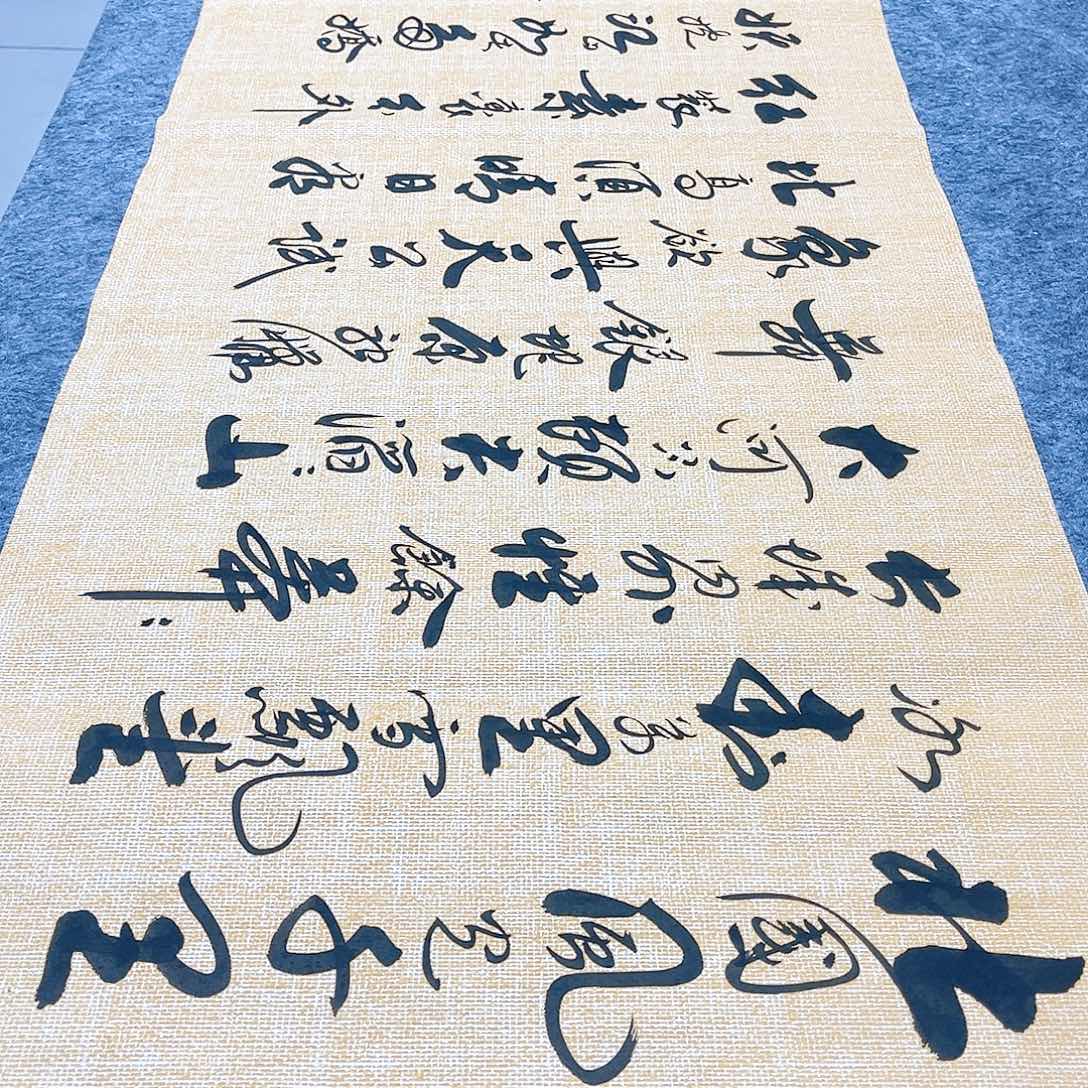 北國風光千里
冰封萬里雪飄望
長城内外惟餘莽莽
大河上下頓失滔滔山
舞銀蛇原馳蠟
象欲與天公試
比高須晴日看
紅裝素裹分外
妖嬈江山如此多嬌